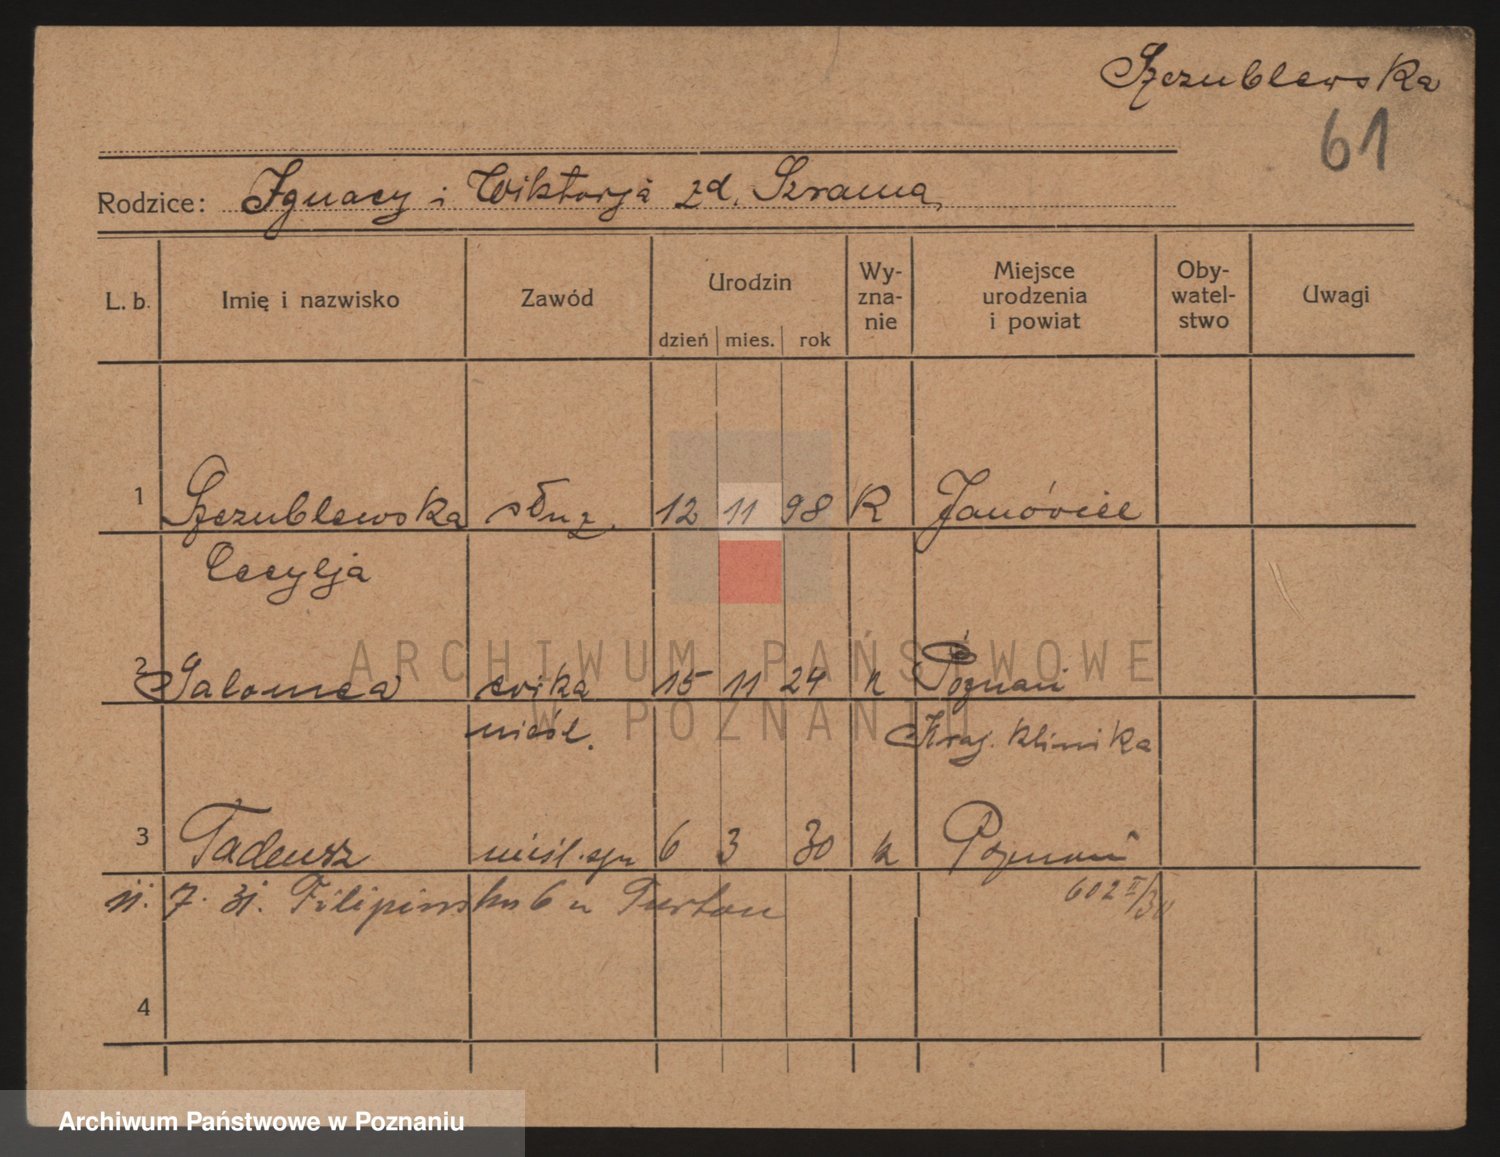 Szczublewska
61
Rodzice: Ignacy i Wiktorja zd. Szrama
L. b. Imię i nazwisko Zawód Urodzin dzień mies. rok Wy-zna-nie Miejsce urodzenia i powiat Oby-watel-stwo Uwagi
1 Szczublewska służ. 12 11 98 K Janówiec
Cecylja
2 Salomea córka 15 11 24 k Poznań
nieśl. Kraj. Klinika
3 Tadeusz nieśl. syn 6 3 30 k Poznań
7. 31. Filipińska 6 u 602 II/30
4
ARCHIWUM PAŃSTWOWE
W POZNANIU
Archiwum Państwowe w Poznaniu